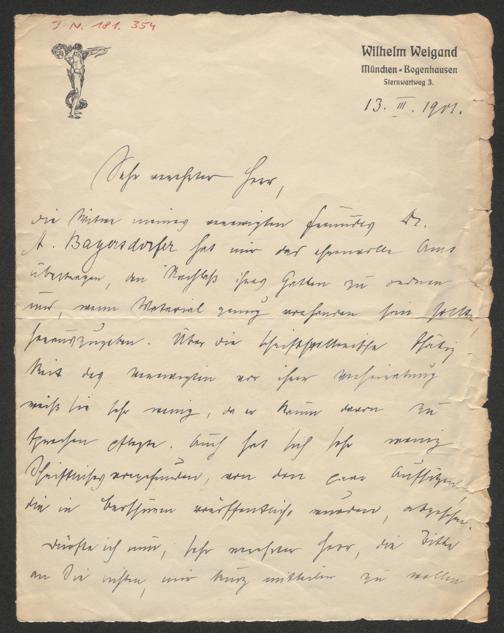 J. N. 181.354
Wilhelm Weigand
München-Bogenhausen
Sternwartweg 3.
13. III. 1901.
Sehr verehrter Herr,
die Witwe meines verewigten Freundes Dr.
A. Bayersdorfer hat mir das ehrenvolle Amt
übertragen, den Nachlaß ihres Gatten zu ordnen
und, wenn Material genug vorhanden sein sollte,
herauszugeben. Über die schriftstellerische Thätig-
keit des Verewigten vor ihrer Verheiratung
weiß sie sehr wenig, da er kaum davon zu
sprechen pflegte. Auch hat sich sehr wenig
Schriftliches vorgefunden, von den paar Aufsätzen,
die in Broschüren veröffentlicht wurden, abgesehen.
Dürfte ich nun, sehr verehrter Herr, die Bitte
an Sie richten, mir kurz mitteilen zu wollen